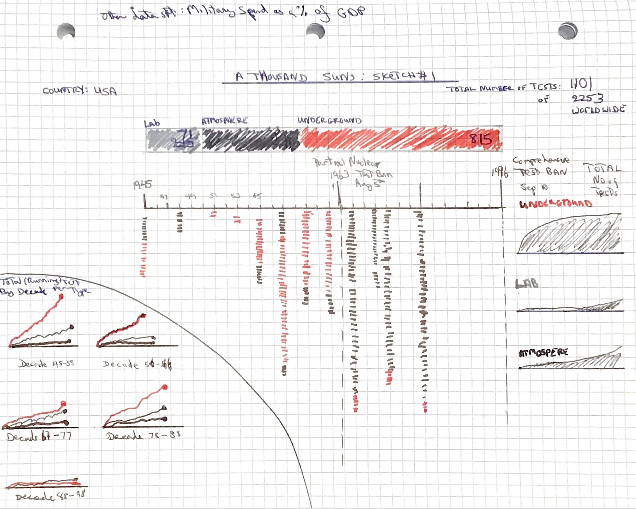 Other data set: Military Spend as a % of GDP
A THOUSAND SUNS: SKETCH #1
COUNTRY: USA
TOTAL NUMBER OF TESTS: 1101
of
2253
WORLDWIDE
Lab
ATMOSPHERE
UNDERGROUND
71
815
Partial Nuclear
1963 Test Ban
Aug 5th
1945
47
49
51
53
1996
Comprehensive
TEST BAN
Sep 10
TOTAL
No. of
Tests
UNDERGROUND
LAB
ATMOSPERE
Total (Running) TOT
By Decade Per Type
Decade 45-55
Decade 56-66
Decade 67-77
Decade 78-88
Decade 88-98